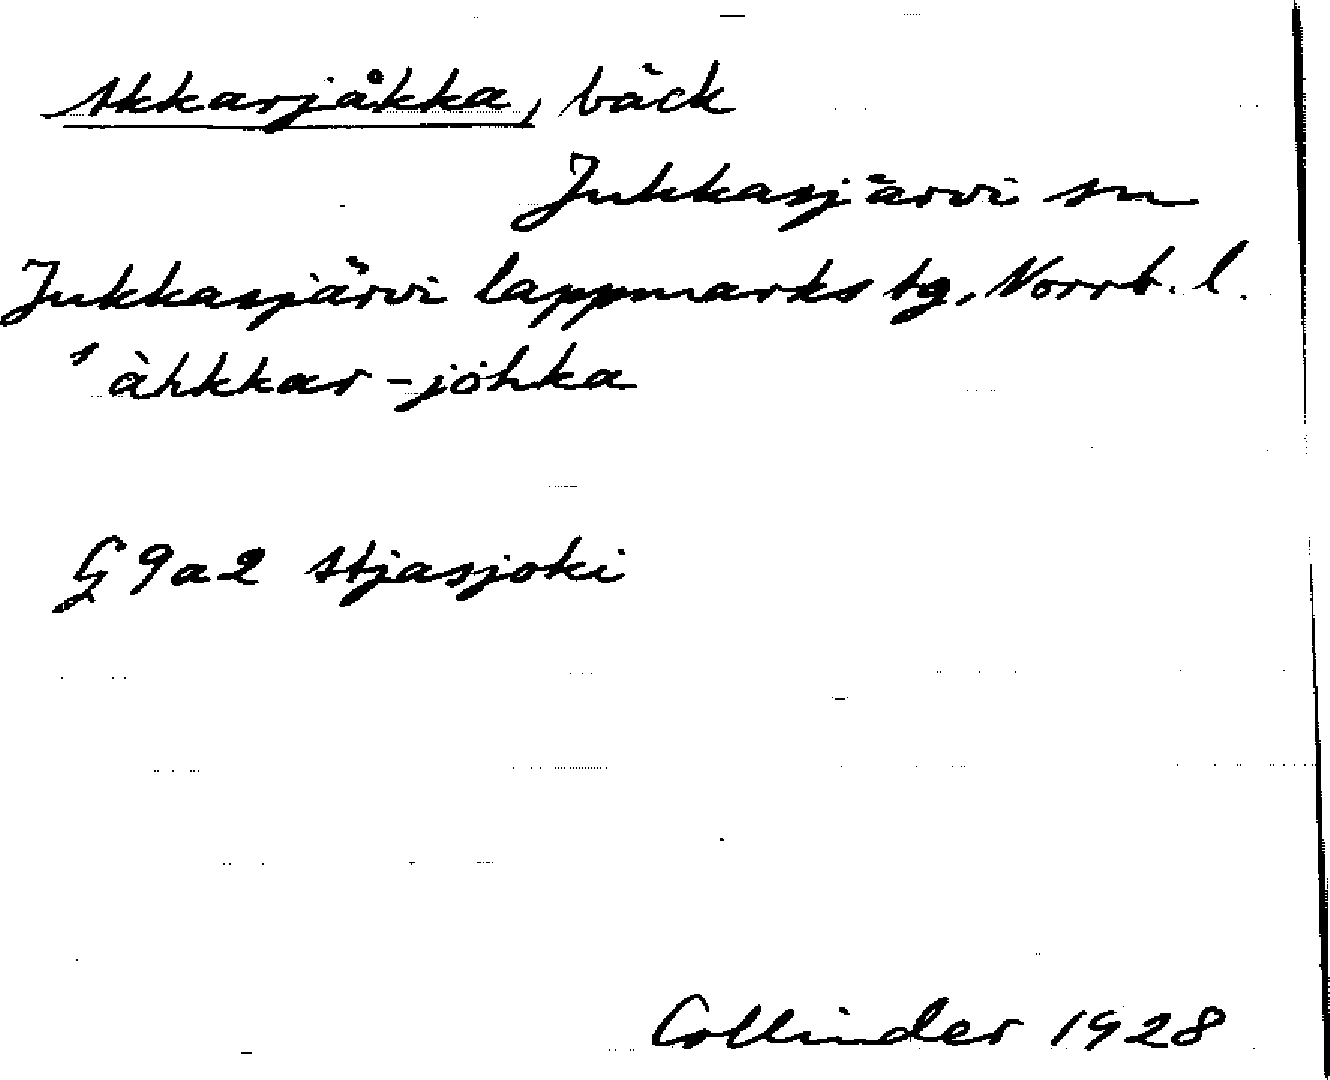 Akkarjåkka, bäck
Jukkasjärvi sn
Jukkasjärvi lappmarks tg, Norrb. l.
ˈàhkkar-johka
G 9a2 Atjasjoki
Collinder 1928